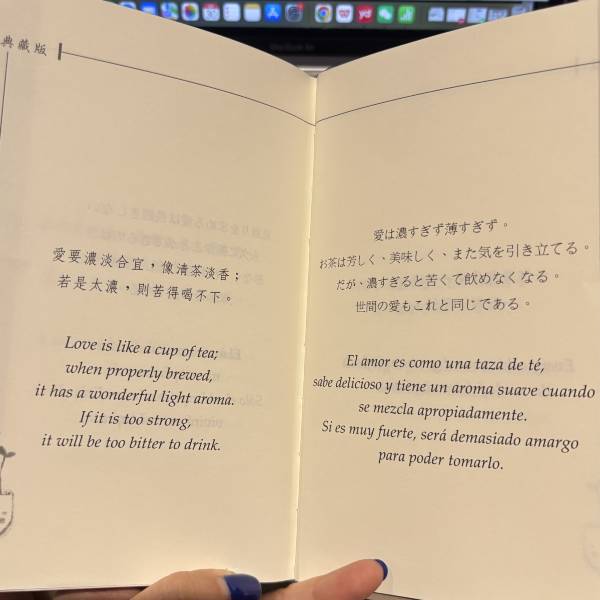 典藏版
愛要濃淡合宜，像清茶淡香；
若是太濃，則苦得喝不下。
Love is like a cup of tea;
when properly brewed,
it has a wonderful light aroma.
If it is too strong,
it will be too bitter to drink.
愛は濃すぎず薄すぎず。
お茶は芳しく、美味しく、また気を引き立てる。
だが、濃すぎると苦くて飲めなくなる。
世間の愛もこれと同じである。
El amor es como una taza de té,
sabe delicioso y tiene un aroma suave cuando
se mezcla apropiadamente.
Si es muy fuerte, será demasiado amargo
para poder tomarlo.